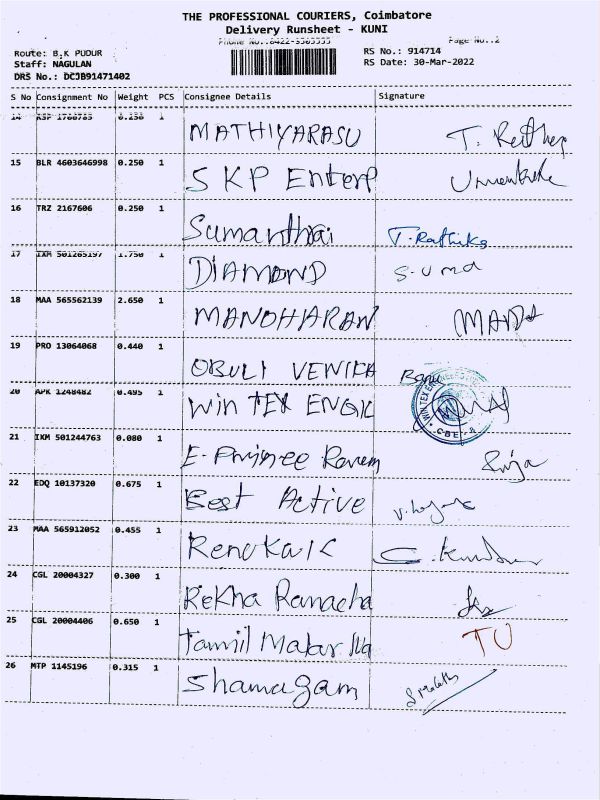 THE PROFESSIONAL COURIERS, Coimbatore
Delivery Runsheet - KUNI
Page No.:2
Route: B.K PUDUR
RS No.: 914714
Staff: NAGULAN
RS Date: 30-Mar-2022
DRS No.: DCJB91471402
S No Consignment No Weight PCS Consignee Details Signature
14 1 MATHIYARASU T.
15 BLR 4603646998 0.250 1 SKP Enterp
16 TRZ 2167606 0.250 1 Sumanthai T.Rathika
17 IXM 501265197 1.750 1 DIAMOND Suma
18 MAA 565562139 2.650 1 MANOHARAN
19 PRO 13064068 0.440 1 OBULI VENIKA Banu
20 APK 1248482 0.495 1 Win TEX ENGIC
21 IXM 501244763 0.080 1
22 EDQ 10137320 0.675 1 Best Active
23 MAA 565912052 0.455 1 Renuka K
24 CGL 20004327 0.300 1 Rekha Ramacha
25 CGL 20004406 0.650 1 Tamil Malar TU
26 MTP 1145196 0.315 1 Shamugam